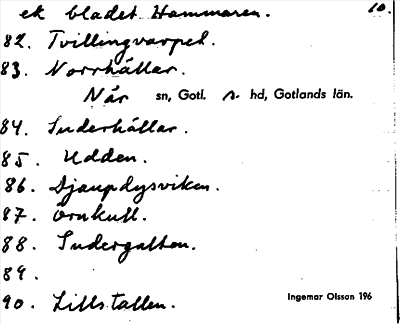 ek bladet Hammaren. 10.
82. Tvillingvarpet.
83. Norrhällar.
När sn, Gotl. s. hd, Gotlands län.
84. Suderhällar.
85. Udden.
86. Djaupdysviken.
87. Örnkull.
88. Sudergatten.
89.
90. Lillstallen.
Ingemar Olsson 196